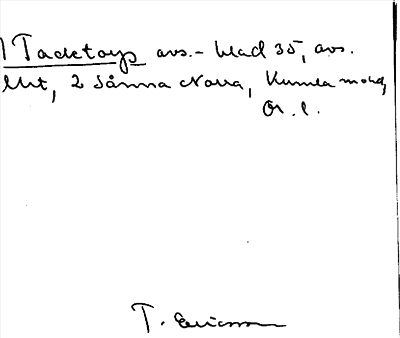 Tacktorp avs.- blad 35, avs.
litt, 2 Sånna Norra, Kumla sn,
Ör. l.
T. Ericsson